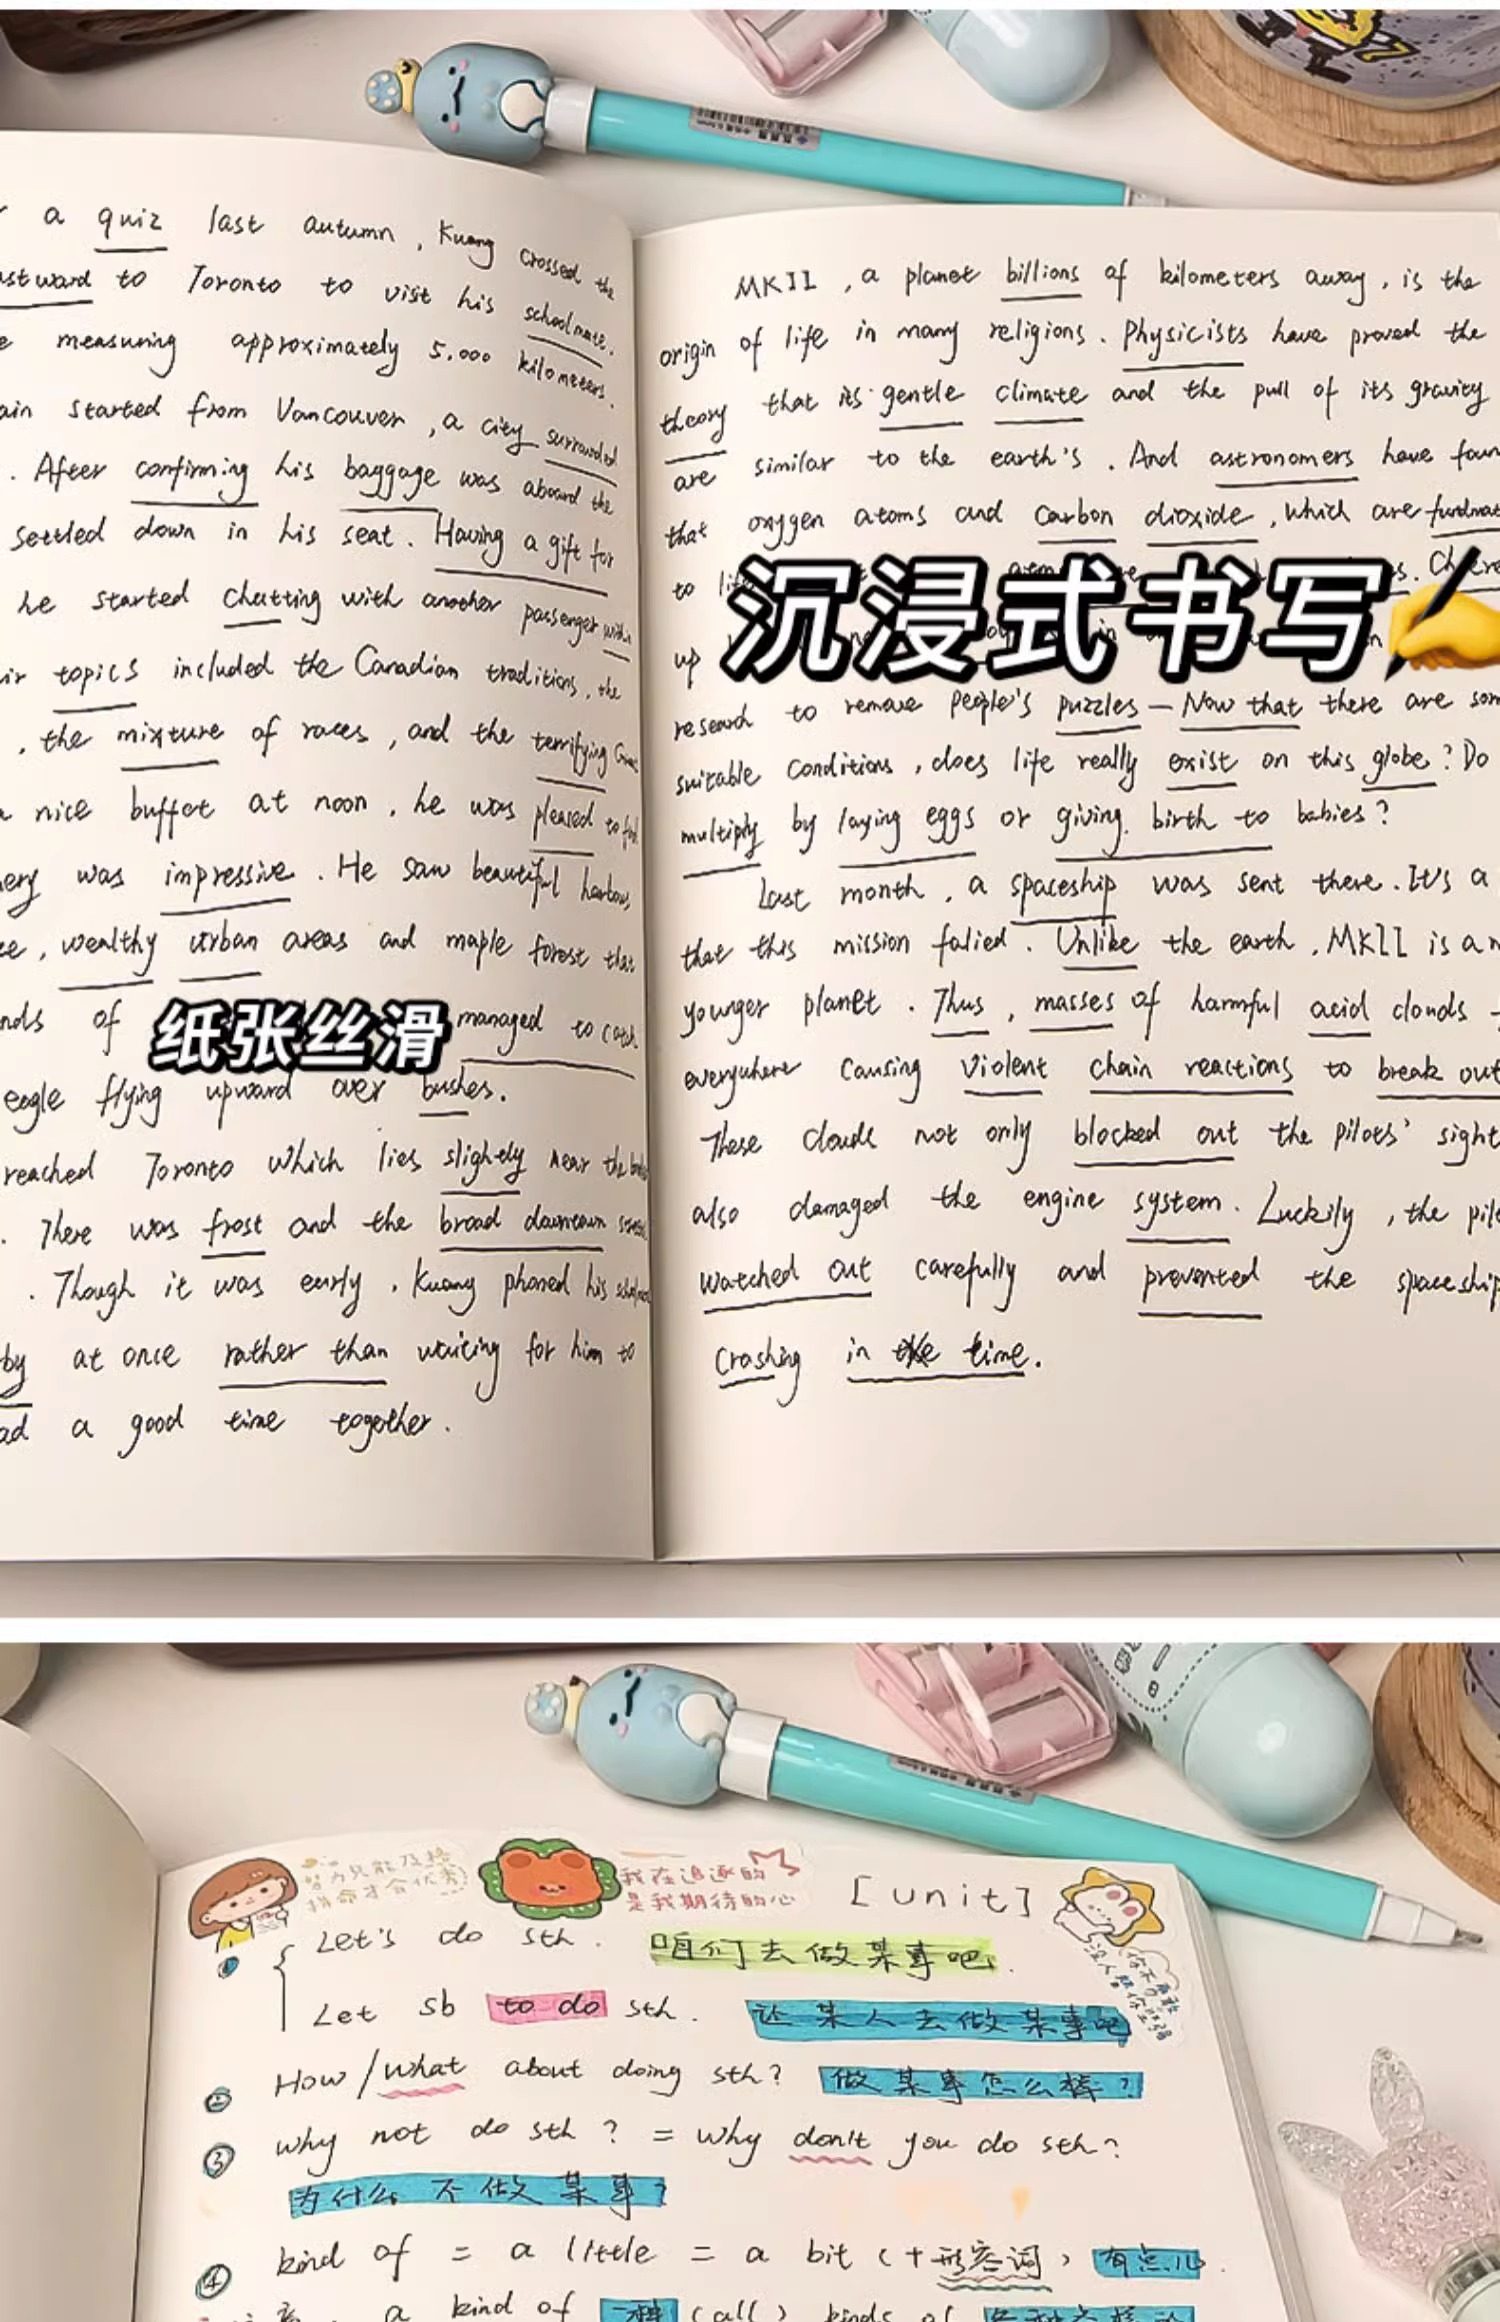 a quiz last autumn, Kuang crossed the
astward to Toronto to visit his schoolmate.
measuring approximately 5,000 kilometers.
ain started from Vancouver, a city surrounded
. After confirming his baggage was aboard the
settled down in his seat. Having a gift for
he started chatting with another passenger within
ir topics included the Canadian traditions, the
, the mixture of races, and the terrifying
a nice buffet at noon, he was pleased to
ery was impressive. He saw beautiful harbour,
ee, wealthy urban areas and maple forest that
nds of managed to catch
纸张丝滑
eagle flying upward over bushes.
reached Toronto which lies slightly near the
. There was frost and the broad downtown
. Though it was early, Kuang phoned his
by at once rather than waiting for him to
ad a good time together.
MKII, a planet billions of kilometers away, is the
origin of life in many religions. Physicists have proved the
theory that its gentle climate and the pull of its gravity
are similar to the earth's. And astronomers have foun
that oxygen atoms and carbon dioxide, which are
to
沉浸式书写
up
research to remove people's puzzles — Now that there are som
suitable conditions, does life really exist on this globe? Do
multiply by laying eggs or giving birth to babies?
Last month, a spaceship was sent there. It's a
that this mission falied. Unlike the earth, MKII is a
younger planet. Thus, masses of harmful acid clouds
everywhere causing violent chain reactions to break out
These clouds not only blocked out the pilots' sight
also damaged the engine system. Luckily, the pil
watched out carefully and prevented the spaceship
crashing in time.
努力只能及格
拼命才会优秀
我在追逐的
是我期待的心
[unit]
① Let's do sth. 咱们去做某事吧.
Let sb to do sth. 让某人去做某事吧
② How/what about doing sth? 做某事怎么样?
③ why not do sth? = why don't you do sth?
为什么不做某事?
④ kind of = a little = a bit (+形容词) 有点儿
a kind of 一种 (all) kinds of